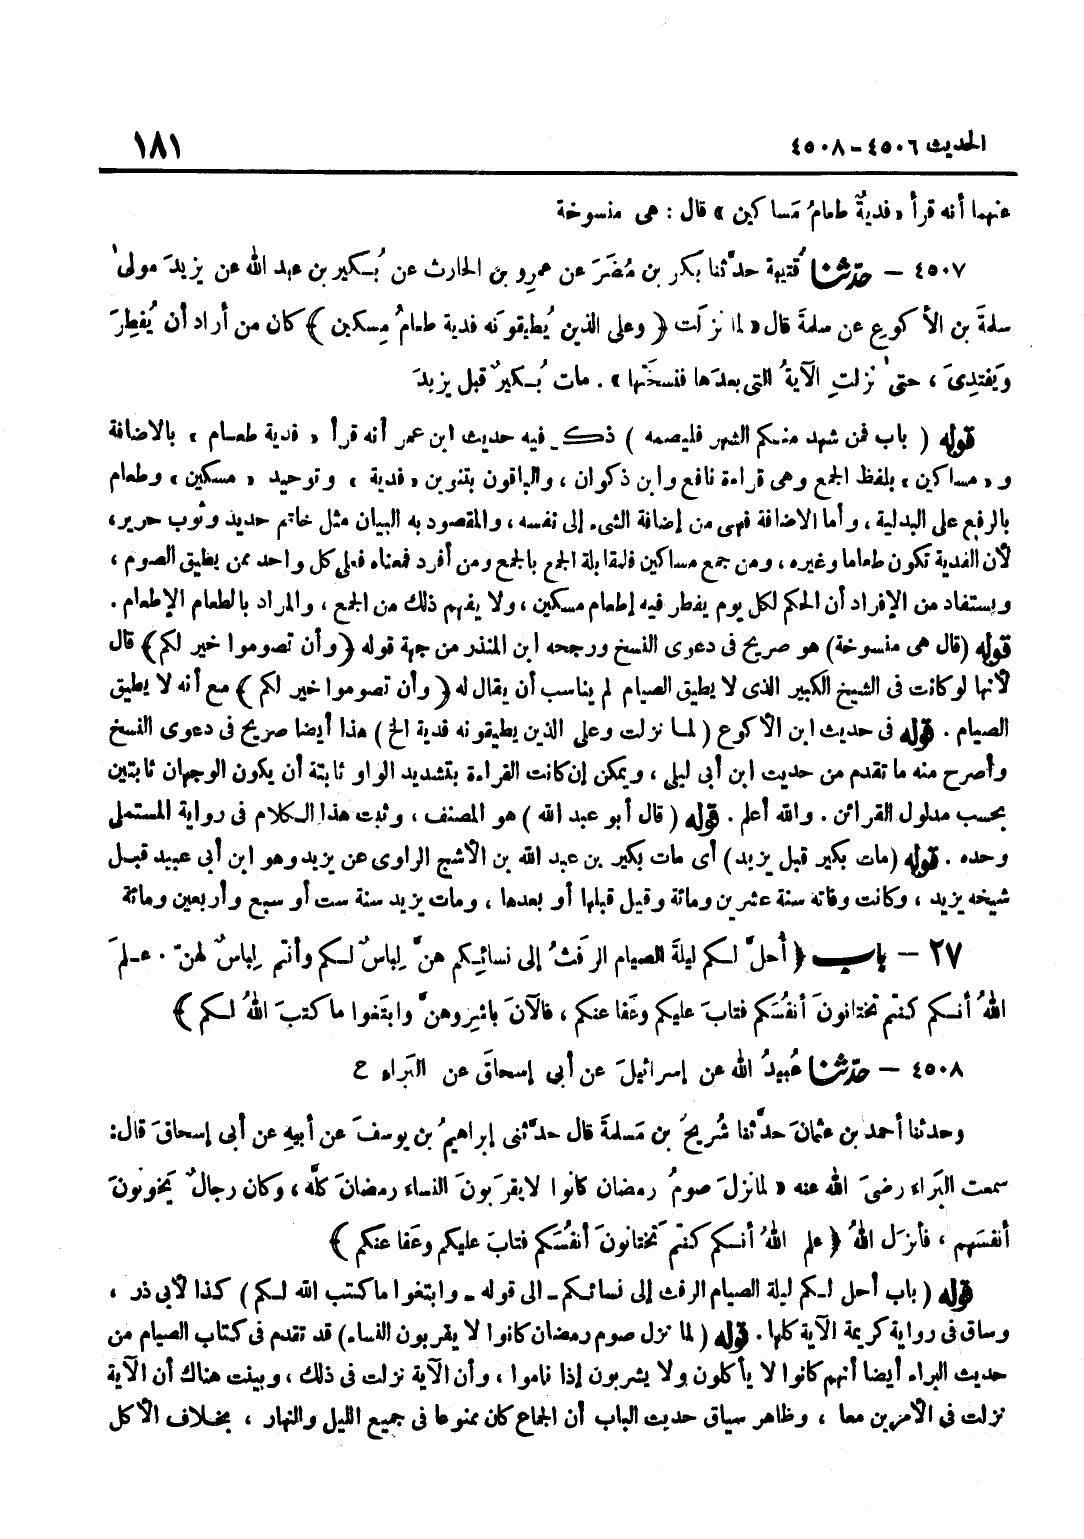 الحديث ٤٥٠٦ - ٤٥٠٨
١٨١
عنهما أنه قرأ « فديةٌ طعامُ مَساكين » قال : هى منسوخة
٤٥٠٧ – حدّثنا قُتيبة حدَّثنا بكر بن مُضَرَ عن عمرِو بن الحارث عن بُـكير بن عبد الله عن يزيدَ مولى
سلمةَ بن الأكوعِ عن سلمةَ قال « لما نزلَت ﴿ وعلى الذين يُطيقونَه فدية طعامُ مِسكين ﴾ كان من أراد أن يُفطِرَ
ويَفتدِىَ ، حتى نزلتِ الآيةُ التى بعدَها فنسخَتْها » . مات بُـكيرٌ قبل يزيدَ
قوله ( باب فمن شهد منـكم الشهر فليصمه ) ذكـر فيه حديث ابن عمر أنه قرأ « فدية طعـام » بالاضافة
و « مساكين » بلفظ الجمع وهى قراءة نافع وابن ذكوان ، والباقون بتنوين « فدية » وتوحيد « مسكين » وطعام
بالرفع على البدلية ، وأما الاضافة فهى من إضافة الشىء إلى نفسه ، والمقصود به البيان مثل خاتم حديد وثوب حرير،
لأن الفدية تكون طعاما وغيره ، ومن جمع مساكين فلمقابلة الجمع بالجمع ومن أفرد فمعناه فعلى كل واحد ممن يطيق الصوم ،
ويستفاد من الإفراد أن الحكم لكل يوم يفطر فيه إطعام مسكين ، ولا يفهم ذلك من الجمع ، والمراد بالطعام الإطعام .
قوله (قال هى منسوخة) هو صريح فى دعوى النسخ ورجحه ابن المنذر من جهة قوله ﴿ وأن تصوموا خير لكم ﴾ قال
لأنها لو كانت فى الشيخ الكبير الذى لا يطيق الصيام لم يناسب أن يقال له ﴿ وأن تصوموا خير لكم ﴾ مع أنه لا يطيق
الصيام . قوله فى حديث ابن الأكوع ( لمـا نزلت وعلى الذين يطيقونه فدية الخ ) هذا أيضا صريح فى دعوى النسخ
وأصرح منه ما تقدم من حديث ابن أبى ليلى ، ويمكن إن كانت القراءة بتشديد الواو ثابتة أن يكون الوجهان ثابتين
بحسب مدلول القرائن . والله أعلم . قوله ( قال أبو عبد الله ) هو المصنف ، وثبت هذا الـكلام فى رواية المستملى
وحده . قوله (مات بكير قبل يزيد) أى مات بكير بن عبد الله بن الأشج الراوى عن يزيد وهو ابن أبى عبيد قبـل
شيخه يزيد ، وكانت وفاته سنة عشرين ومائة وقيل قبلها أو بعدها ، ومات يزيد سنة ست أو سبع وأربعين ومائة
٢٧ – باب ﴿ أُحلَّ لـكم ليلةَ الصيام الرفَثُ إلى نسائِكم هنَّ لِباسٌ لـكم وأنتم لِباسٌ لهنّ . عـلمَ
اللهُ أنـكم كنتم تختانونَ أنفُسَكم فتابَ عليكم وعَفا عنكم ، فالآنَ باشِروهنَّ وابتَغوا ما كتبَ اللهُ لـكم ﴾
٤٥٠٨ – حدّثنا عُبيدُ الله عن إسرائيلَ عن أبى إسحاقَ عن البَراء ح
وحدثنا أحمد بن عثمانَ حدَّثنا شُريحُ بن مَسلمةَ قال حدَّثنى إبراهيمُ بن يوسفَ عن أبيهِ عن أبى إسحاقَ قال:
سمعت البَراء رضىَ الله عنه « لما نزلَ صومُ رمضان كانوا لا يقرَبونَ النساء رمضانَ كلَّه ، وكان رجالٌ يَخونونَ
أنفسَهم ، فأنزَل اللهُ ﴿ علم اللهُ أنـكم كنتم تَختانونَ أنفُسَكم فتابَ عليكم وعَفا عنكم ﴾
قوله ( باب أحل لـكم ليلة الصيام الرفث إلى نسائـكم ـ الى قوله ـ وابتغوا ما كتب الله لـكم ) كذا لأبى ذر ،
وساق فى رواية كريمة الآية كلها . قوله ( لما نزل صوم رمضان كانوا لا يقربون النساء ) قد تقدم فى كتاب الصيام من
حديث البراء أيضا أنهم كانوا لا يأكلون ولا يشربون إذا ناموا ، وأن الآية نزلت فى ذلك ، وبينت هناك أن الآية
نزلت فى الأمرين معا ، وظاهر سياق حديث الباب أن الجماع كان ممنوعا فى جميع الليل والنهار ، بخـلاف الأكل